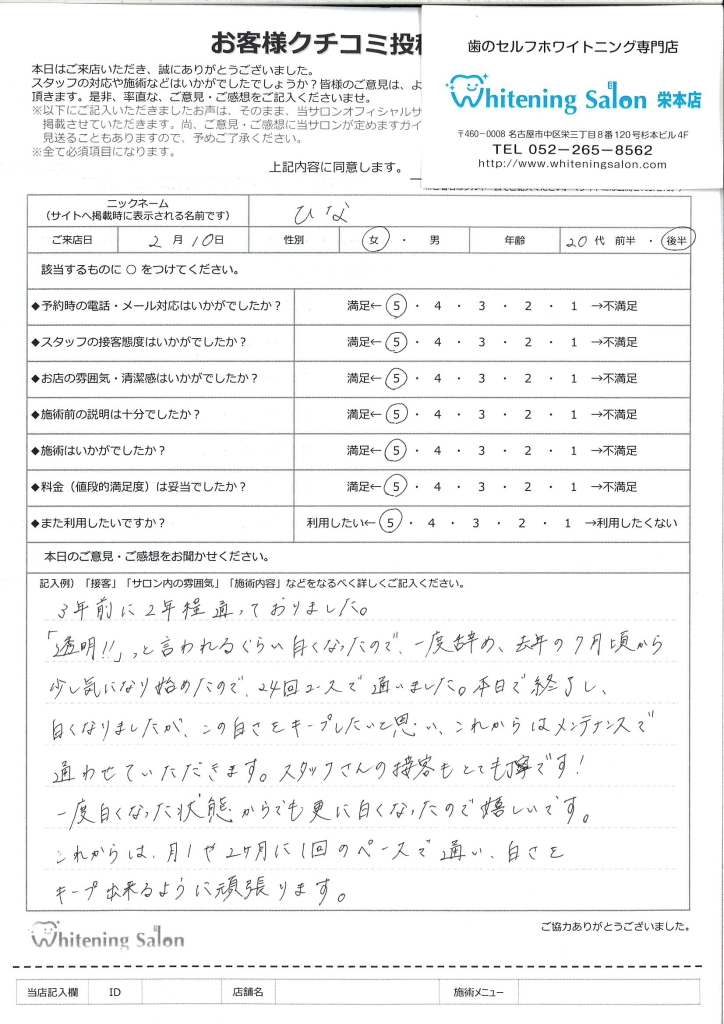 お客様クチコミ投稿
本日はご来店いただき、誠にありがとうございました。
スタッフの対応や施術などはいかがでしたでしょうか？皆様のご意見は、よ
頂きます。是非、率直な、ご意見・ご感想をご記入くださいませ。
※以下にご記入いただきましたお声は、そのまま、当サロンオフィシャルサ
掲載させていただきます。尚、ご意見・ご感想に当サロンが定めますガイ
見送ることもありますので、予めご了承ください。
※全て必須項目になります。
上記内容に同意します。
歯のセルフホワイトニング専門店
Whitening Salon 栄本店
〒460-0008 名古屋市中区栄三丁目8番120号杉本ビル4F
TEL 052-265-8562
http://www.whiteningsalon.com
ニックネーム
（サイトへ掲載時に表示される名前です）
ひな
ご来店日 2月10日 性別 女・男 年齢 20代 前半・後半
該当するものに ○ をつけてください。
◆予約時の電話・メール対応はいかがでしたか？ 満足← 5 ・ 4 ・ 3 ・ 2 ・ 1 →不満足
◆スタッフの接客態度はいかがでしたか？ 満足← 5 ・ 4 ・ 3 ・ 2 ・ 1 →不満足
◆お店の雰囲気・清潔感はいかがでしたか？ 満足← 5 ・ 4 ・ 3 ・ 2 ・ 1 →不満足
◆施術前の説明は十分でしたか？ 満足← 5 ・ 4 ・ 3 ・ 2 ・ 1 →不満足
◆施術はいかがでしたか？ 満足← 5 ・ 4 ・ 3 ・ 2 ・ 1 →不満足
◆料金（値段的満足度）は妥当でしたか？ 満足← 5 ・ 4 ・ 3 ・ 2 ・ 1 →不満足
◆また利用したいですか？ 利用したい← 5 ・ 4 ・ 3 ・ 2 ・ 1 →利用したくない
本日のご意見・ご感想をお聞かせください。
記入例）「接客」「サロン内の雰囲気」「施術内容」などをなるべく詳しくご記入ください。
3年前に2年程通っておりました。
「透明!!」っと言われるぐらい白くなったので、一度辞め、去年の7月頃から
少し気になり始めたので、24回コースで通いました。本日で終了し、
白くなりましたが、この白さをキープしたいと思い、これからはメンテナンスで
通わせていただきます。スタッフさんの接客もとても丁寧です！
一度白くなった状態からでも更に白くなったので嬉しいです。
これからは、月1や2ヶ月に1回のペースで通い、白さを
キープ出来るように頑張ります。
Whitening Salon
ご協力ありがとうございました。
当店記入欄 ID 店舗名 施術メニュー